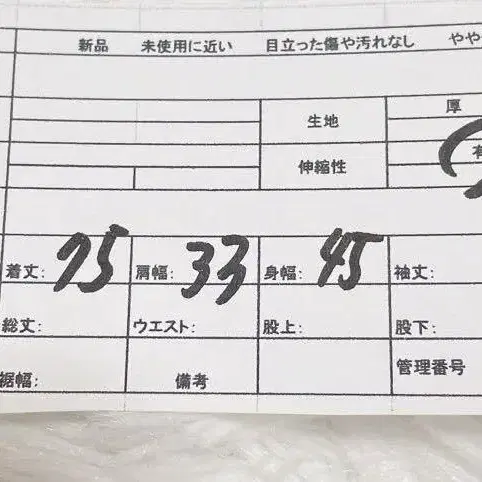 新品 未使用に近い 目立った傷や汚れなし やや
厚
生地
伸縮性 有
着丈: 75 肩幅: 33 身幅: 45 袖丈:
総丈: ウエスト: 股上: 股下:
裾幅: 備考 管理番号